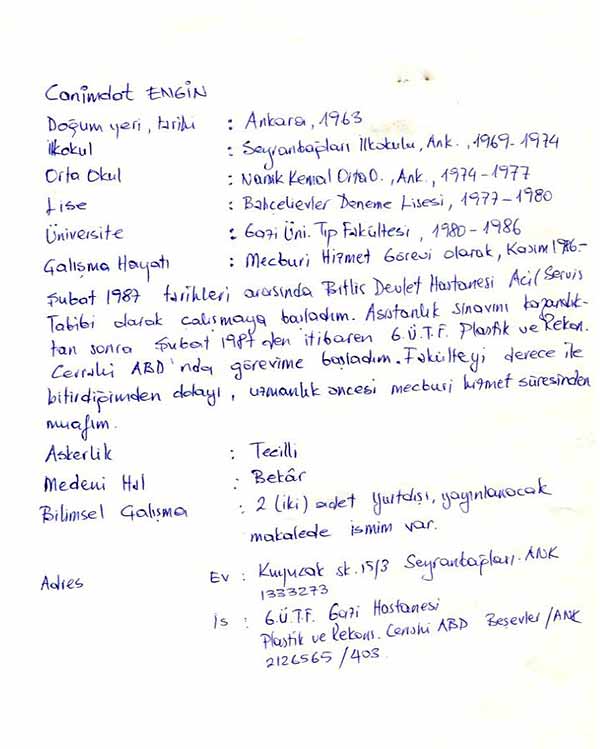 Canimdat ENGİN
Doğum yeri, tarihi : Ankara, 1963
İlkokul : Seyranbağları İlkokulu, Ank., 1969-1974
Orta Okul : Namık Kemal Orta O., Ank., 1974-1977
Lise : Bahçelievler Deneme Lisesi, 1977-1980
Üniversite : Gazi Üni. Tıp Fakültesi, 1980-1986
Çalışma Hayatı : Mecburi Hizmet Görevi olarak, Kasım 1986-
Şubat 1987 tarihleri arasında Bitlis Devlet Hastanesi Acil Servis
Tabibi olarak çalışmaya başladım. Asistanlık sınavını kazandık-
tan sonra Şubat 1987 den itibaren G.Ü.T.F. Plastik ve Rekon.
Cerrahi ABD'nda görevime başladım. Fakülteyi derece ile
bitirdiğimden dolayı, uzmanlık öncesi mecburi hizmet süresinden
muafım.
Askerlik : Tecilli
Medeni Hal : Bekâr
Bilimsel Çalışma : 2 (iki) adet yurtdışı, yayınlanacak
makalede ismim var.
Adres Ev : Kuyucak sk. 15/3 Seyranbağları. ANK
1333273
İş : G.Ü.T.F. Gazi Hastanesi
Plastik ve Rekons. Cerrahi ABD Beşevler/ANK
2126565/403.